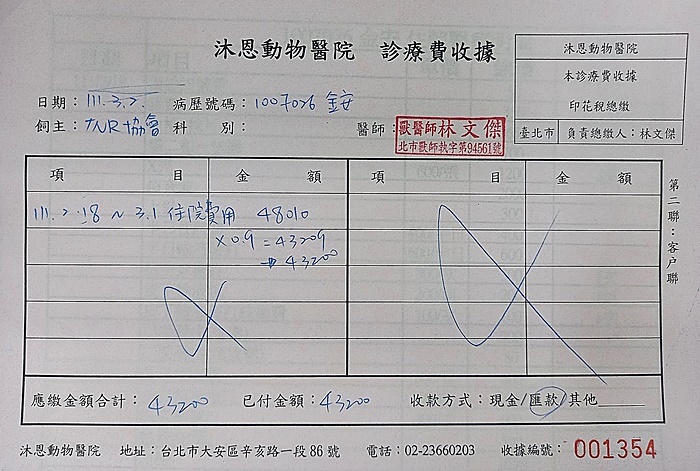 沐恩動物醫院 診療費收據
沐恩動物醫院
本診療費收據
印花稅總繳
臺北市 負責總繳人：林文傑
日期：111.3.2. 病歷號碼：1007026 金安
飼主：TNR協會 科別： 醫師：獸醫師林文傑
北市獸師執字第94561號
項目 金額 項目 金額
111.2.18 ~ 3.1 住院費用 48010
×0.9 = 43209
→ 43200
第二聯：客戶聯
應繳金額合計：43200 已付金額：43200 收款方式：現金/匯款/其他
沐恩動物醫院 地址：台北市大安區辛亥路一段86號 電話：02-23660203 收據編號：001354